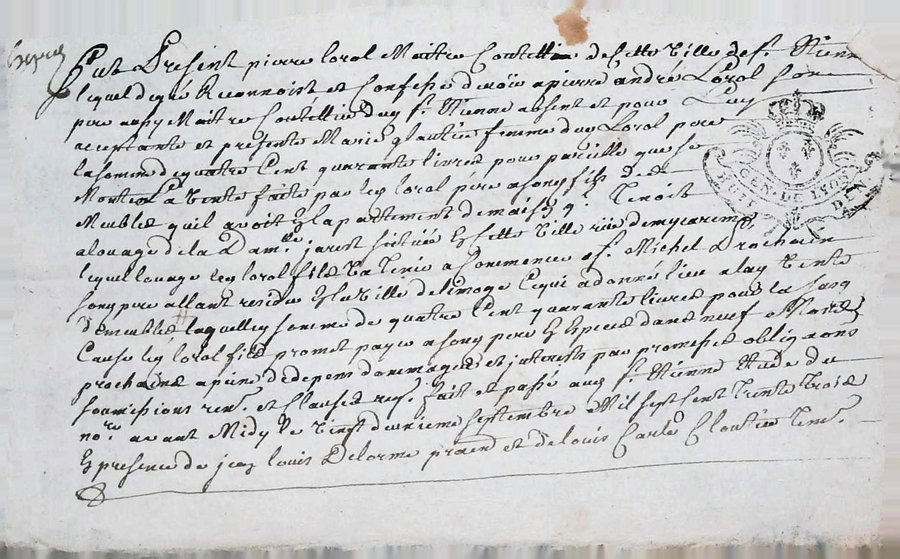 Expédié
Fut Présent pierre Loral Maitre Coutellier de cette Ville de St Etienne
lequel de gré Reconnoist et Confesse devoir a pierre andré Loral son
pere aussy Maitre Coutellier aud St Etienne absent et pour Luy
acceptante et présente Marie femme dud Loral pere
la somme de quatre Cent quarante livres pour pareille que se
Monte La Vente faite par led loral pere a sond fils des
Meubles quil avoit en lapartement de maison quil Tenoit
a louage de la Damlle jarest scituée en cette Ville rüe de mycareme
lequel louage led loral fils Va Tenir a Commencer a St Michel Prochain
sond pere allant resider en la Ville de limoge Ce qui a donné lieu a lad Vente
de meubles laquelle somme de quatre Cent quarante livres pour la susd
Cause led loral fils promet payer a sond pere En Especes dans neuf
prochaines a peine de depens dommages et interests par promesses obligaons
soumissions renons et Clauses reqs fait et passé aud St Etienne Etude du
nore avant Midy le Vingt deuxieme septembre Mil sept Cent Trente Trois
En presence de jean Louis Delorme praen et de louis Carle Cloutier Tems
GEN. DE LYON
HUIT DEN.